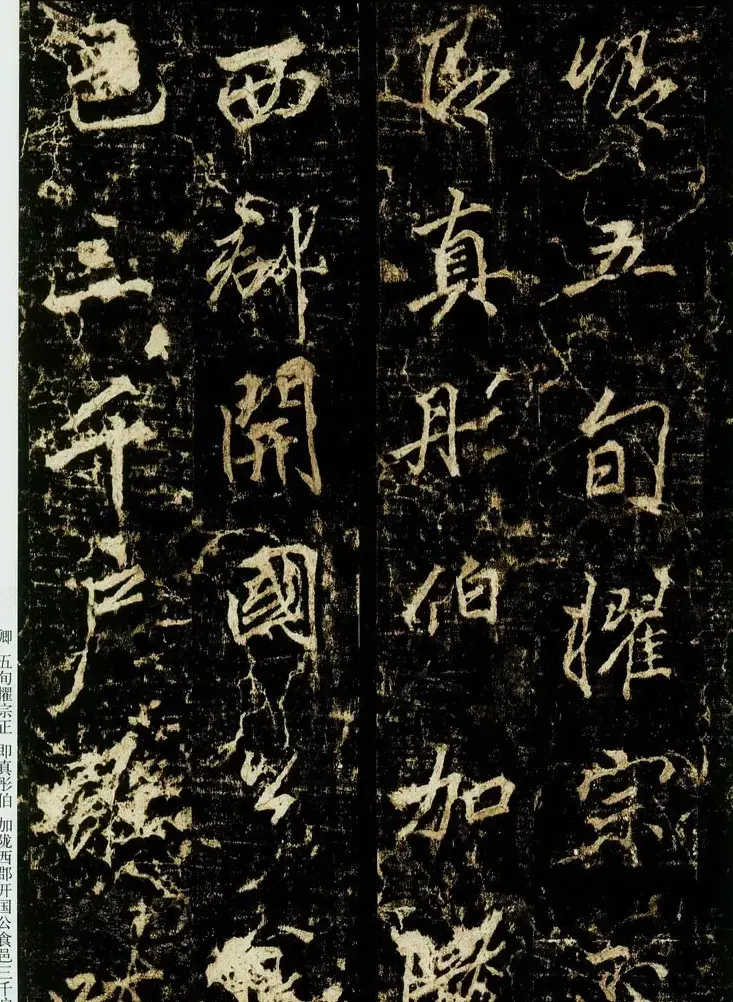 卿五旬擢宗正
即真彤伯加隴
西郡開國公食
邑三千户
卿 五旬擢宗正 即真彤伯 加陇西郡开国公食邑三千户